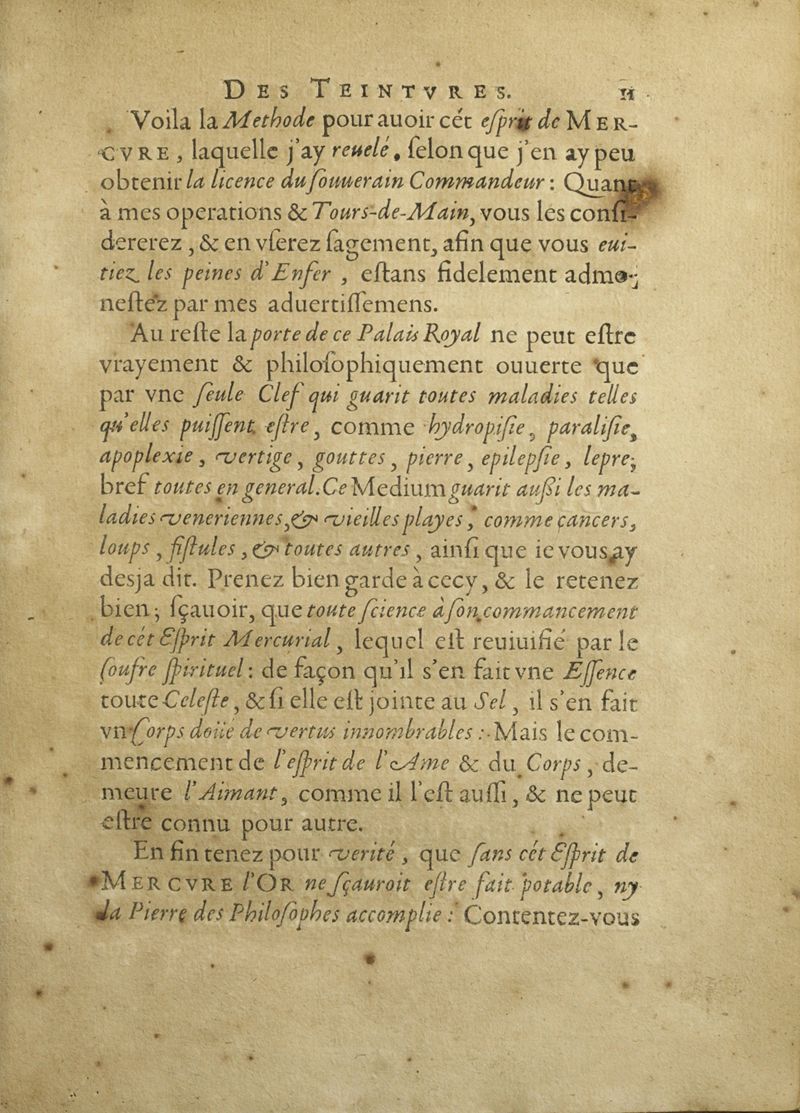 DES TEINTVRES. 11
Voila la Methode pour auoir cét eſprit de MER-
CVRE, laquelle j'ay reuelé, ſelon que j'en ay peu
obtenir la licence du ſouuerain Commandeur: Quant
à mes operations & Tours-de-Main, vous les conſi-
dererez, & en vſerez ſagement, afin que vous eui-
tiez les peines d'Enfer, eſtans fidelement admo-
neſtéz par mes aduertiſſemens.
Au reſte la porte de ce Palais Royal ne peut eſtre
vrayement & philoſophiquement ouuerte que
par vne ſeule Clef qui guarit toutes maladies telles
qu'elles puiſſent eſtre, comme hydropiſie, paraliſie,
apoplexie, vertige, gouttes, pierre, epilepſie, lepre;
bref toutes en general. Ce Medium guarit auſsi les ma-
ladies veneriennes, & vieilles playes, comme cancers,
loups, fiſtules, & toutes autres, ainſi que ie vous ay
desja dit. Prenez bien garde à cecy, & le retenez
bien; ſçauoir, que toute ſcience à ſon commancement
de cét Eſprit Mercurial, lequel eſt reuiuifié par le
ſoufre ſpirituel: de façon qu'il s'en fait vne Eſſence
toute Celeſte, & ſi elle eſt jointe au Sel, il s'en fait
vn Corps doüé de vertus innombrables: Mais le com-
mencement de l'eſprit de l'Ame & du Corps, de-
meure l'Aimant, comme il l'eſt auſſi, & ne peut
eſtre connu pour autre.
En fin tenez pour verité, que ſans cét Eſprit de
MERCVRE l'OR ne ſçauroit eſtre fait potable, ny
la Pierre des Philoſophes accomplie: Contentez-vous